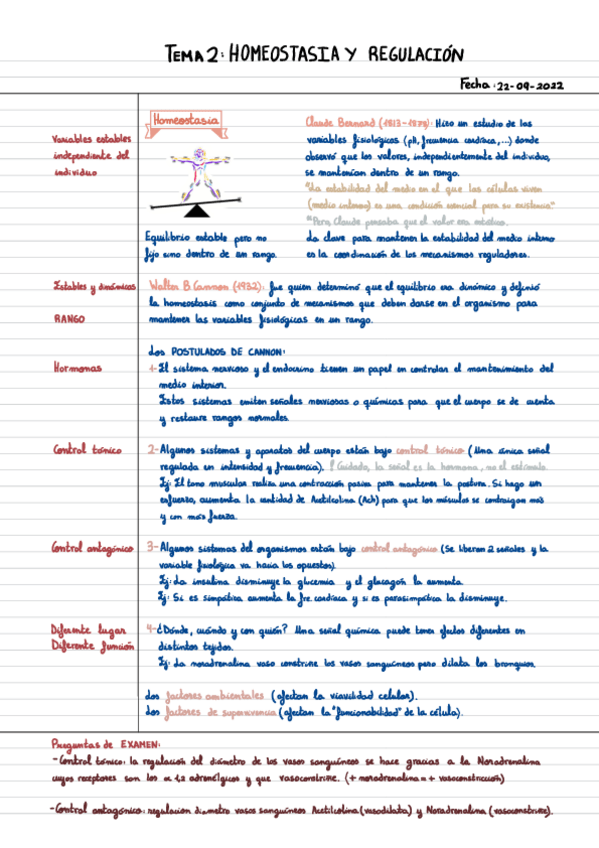 TEMA 2: HOMEOSTASIA Y REGULACIÓN
Fecha: 22-09-2022
Variables estables
independiente del
individuo
Homeostasia
Equilibrio estable pero no
fijo sino dentro de un rango.
Claude Bernard (1813-1878): Hizo un estudio de las
variables fisiológicas (pH, frecuencia cardíaca,...) donde
observó que los valores, independientemente del individuo,
se mantenían dentro de un rango.
"La estabilidad del medio en el que las células viven
(medio interno) es una condición esencial para su existencia"
*Pero, Claude pensaba que el valor era estático.
La clave para mantener la estabilidad del medio interno
es la coordinación de los mecanismos reguladores.
Estables y dinámicas
RANGO
Walter B Cannon (1932): fue quien determinó que el equilibrio era dinámico y definió
la homeostasis como conjunto de mecanismos que deben darse en el organismo para
mantener las variables fisiológicas en un rango.
Los POSTULADOS DE CANNON:
Hormonas
1-El sistema nervioso y el endocrino tienen un papel en controlar el mantenimiento del
medio interior.
Estos sistemas emiten señales nerviosas o químicas para que el cuerpo se de cuenta
y restaure rangos normales.
Control tónico
2-Algunos sistemas y aparatos del cuerpo están bajo control tónico (Una única señal
regulada en intensidad y frecuencia). ! Cuidado, la señal es la hormona, no el estímulo.
Ej: El tono muscular realiza una contracción pasiva para mantener la postura. Si hago un
esfuerzo, aumenta la cantidad de Acetilcolina (Ach) para que los músculos se contraigan más
y con más fuerza.
Control antagónico
3-Algunos sistemas del organismos están bajo control antagónico (Se liberan 2 señales y la
variable fisiológica va hacia los opuestos).
Ej: La insulina disminuye la glucemia y el glucagón la aumenta.
Ej: Si es simpática aumenta la fre. cardíaca y si es parasimpática la disminuye.
Diferente lugar
Diferente función
4-¿Dónde, cuándo y con quién? Una señal química puede tener efectos diferentes en
distintos tejidos.
Ej: La noradrenalina vaso constrine los vasos sanguíneos pero dilata los bronquios.
Los factores ambientales (afectan la viavilidad celular).
Los factores de supervivencia (afectan la "funcionabilidad" de la célula).
Preguntas de EXAMEN:
-Control tónico: la regulación del diámetro de los vasos sanguíneos se hace gracias a la Noradrenalina
cuyos receptores son los α 1,2 adrenélgicos y que vasoconstrine. (+ noradrenalina = + vasoconstricción)
-Control antagónico: regulacion diametro vasos sanguíneos Acetilcolina (vasodilata) y Noradrenalina (vasoconstrine).